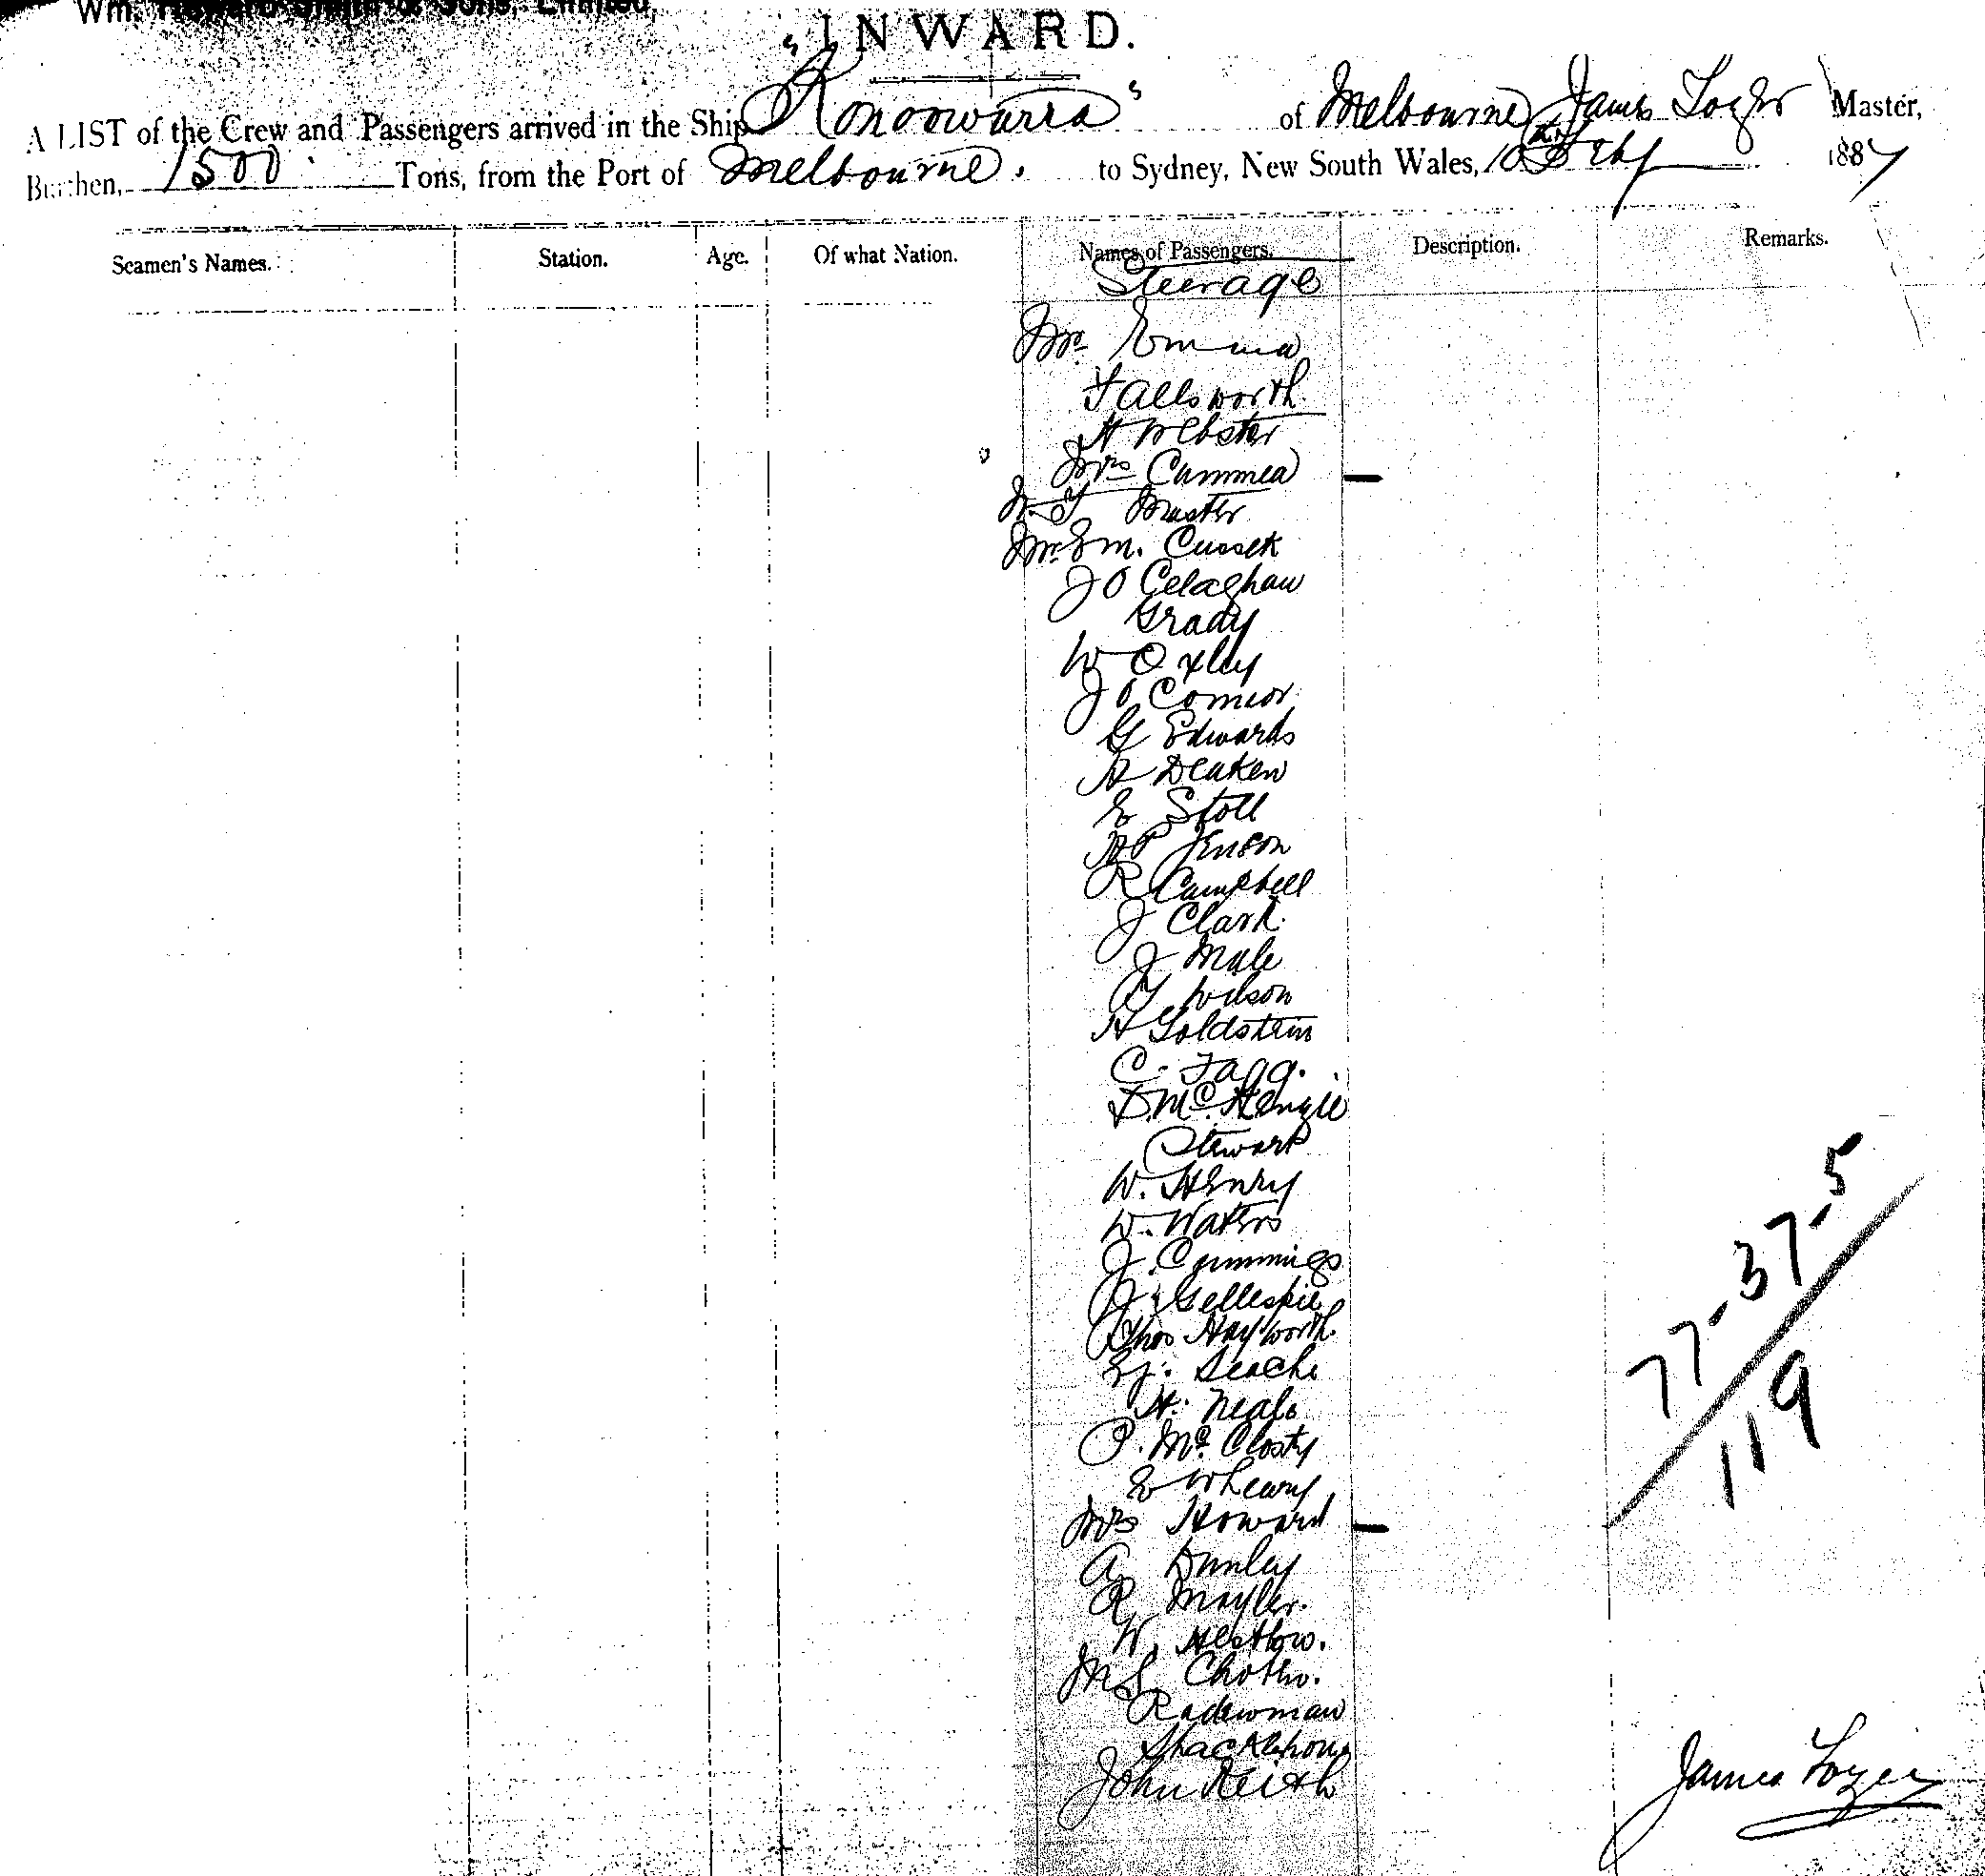 Wm. Howard Smith & Sons, Limited,
"INWARD.
A LIST of the Crew and Passengers arrived in the Ship Konoowarra" of Melbourne, James Master,
Burthen, 1500 Tons, from the Port of Melbourne. to Sydney, New South Wales, 10th Feby 1887
Seamen's Names. Station. Age. Of what Nation. Names of Passengers. Description. Remarks.
Steerage
Mr Emma
Fallsworth
H Webster
Mrs Cammea
Master
Mr E M. Cussek
J O Celaghan
Grady
W Oxley
J O Connor
G Edwards
A Deaken
E Stoll
A P Jenson
R Campbell
J Clark
J Male
Wilson
H Goldstein
C. Fagg.
D. Mc.
Stewart
W. Henry
W. Waters
J. Cummings
J. Gellespie
Thos Hayworth.
H. Neale
P. Mc. Closty
E
Mrs Howard
A Dunley
R Mayler.
W.
M S
Radewman
John Keith
77-37-5
119
James